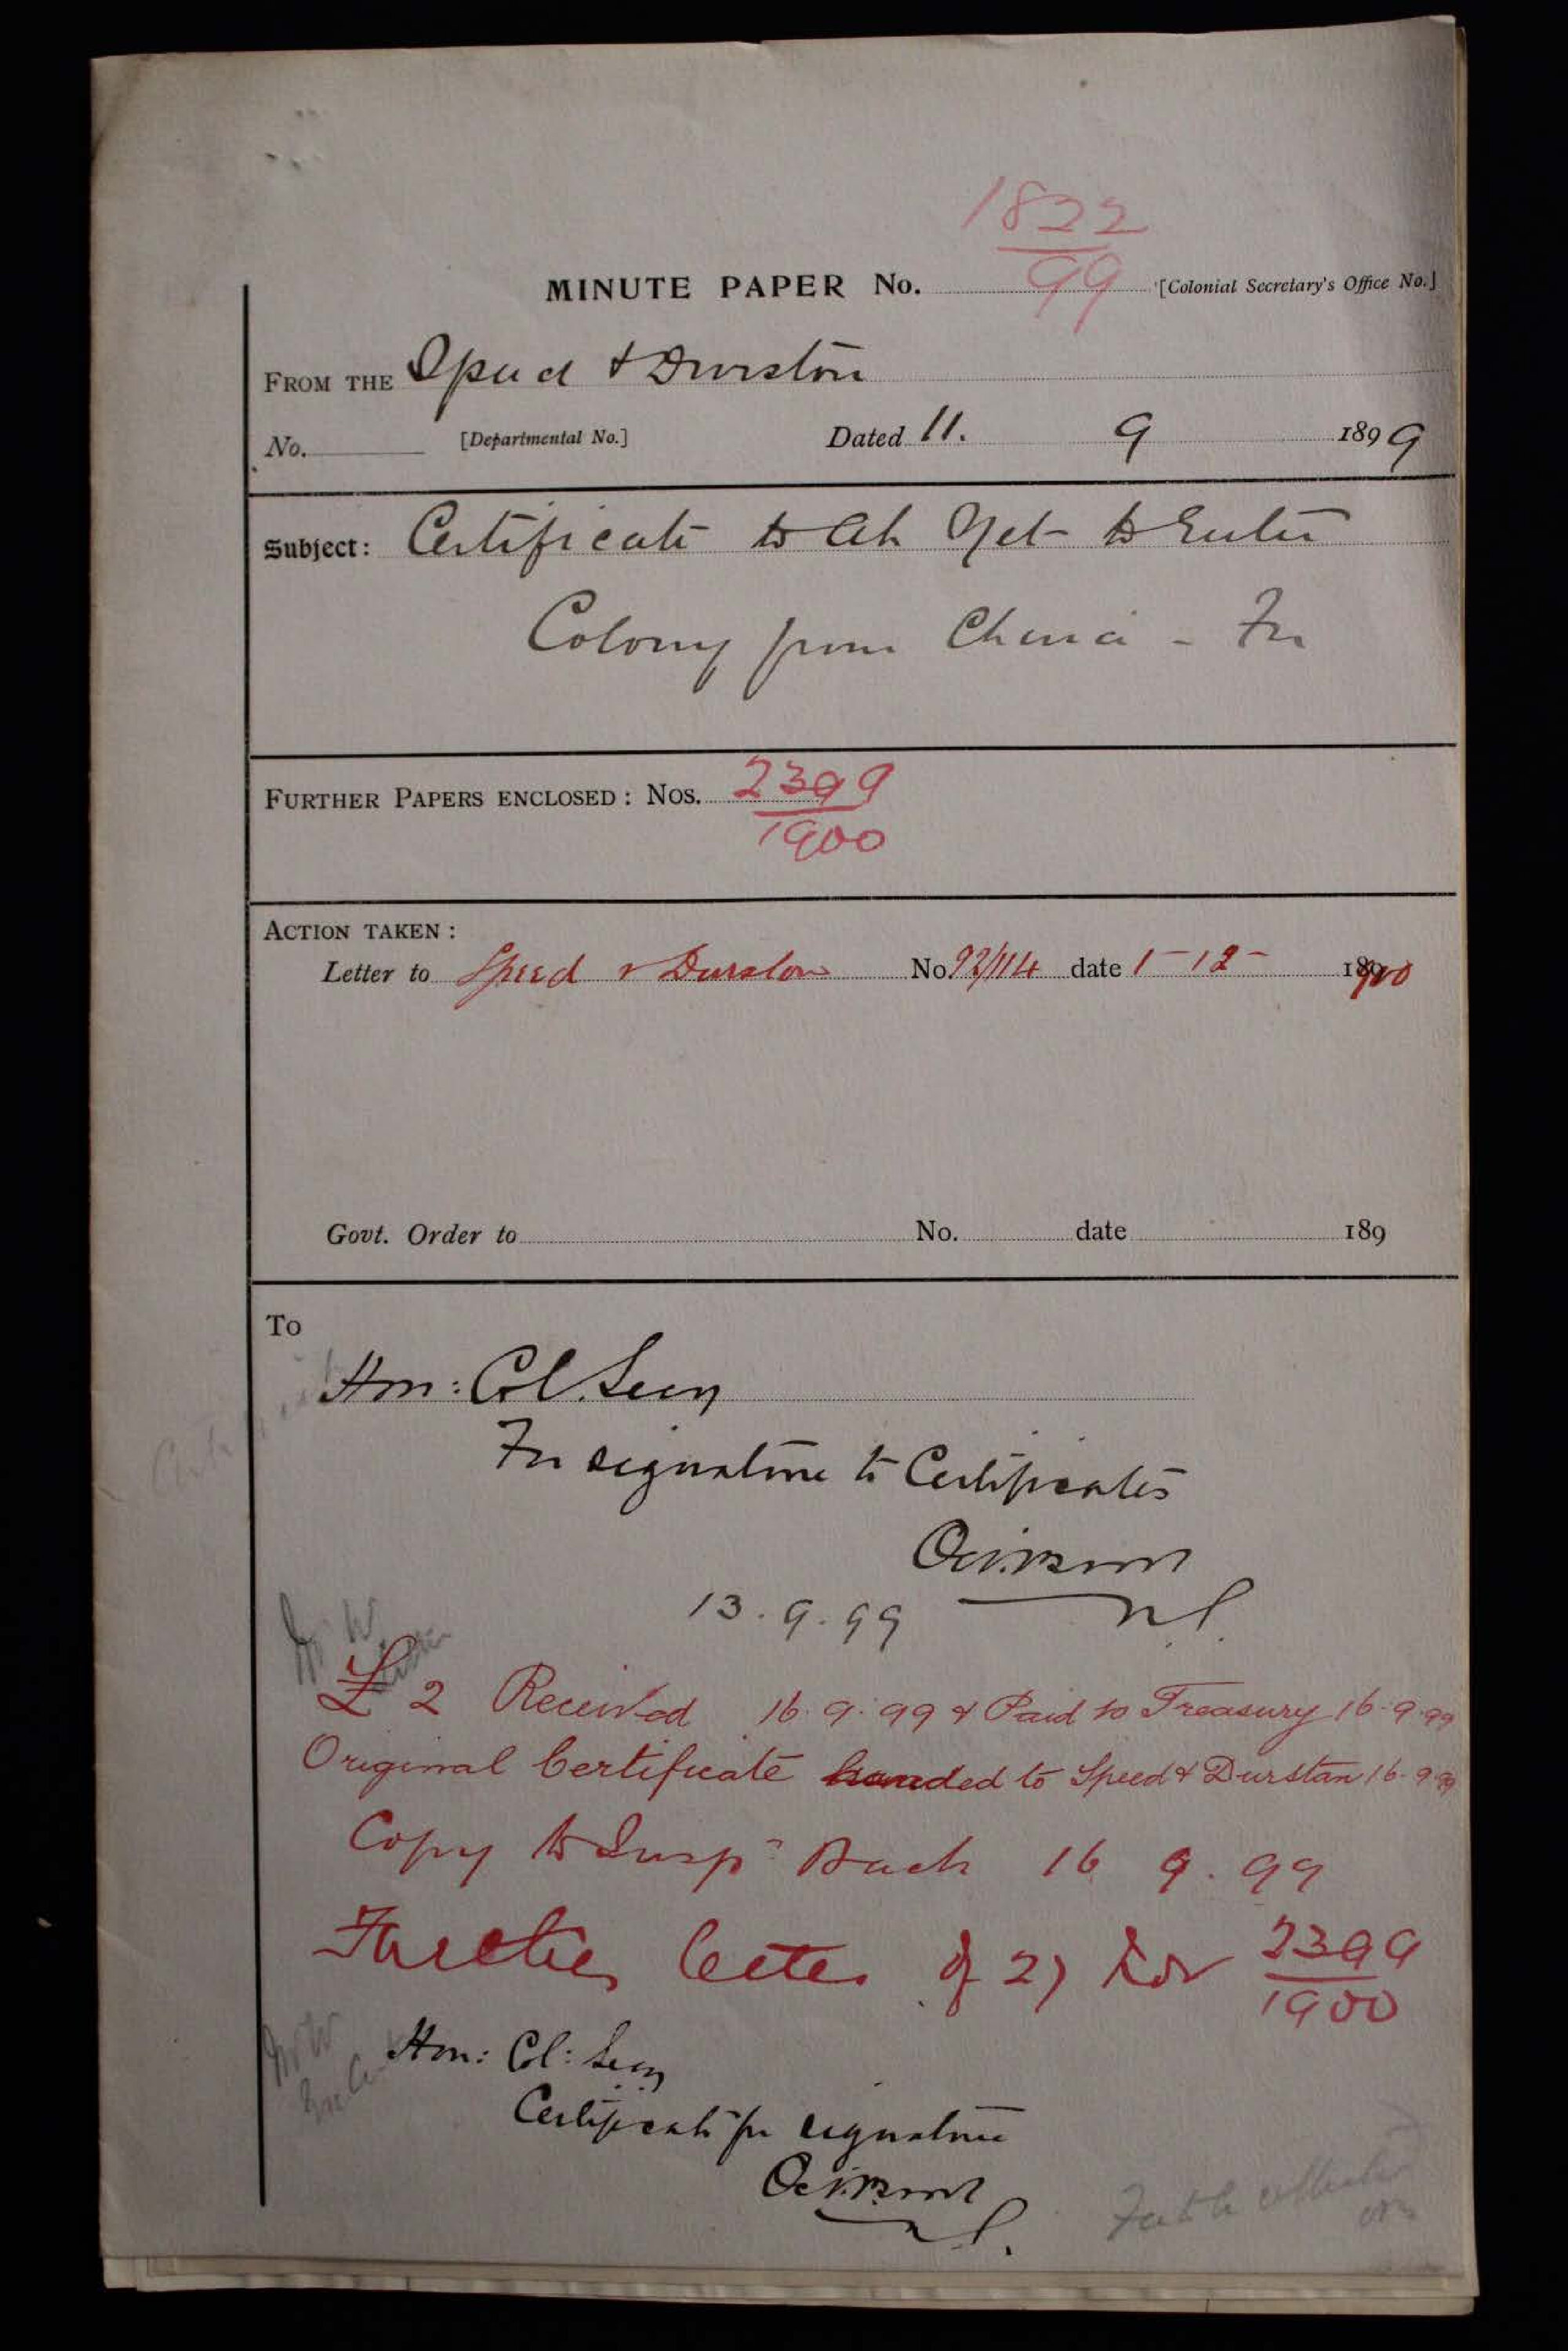 1822
99
MINUTE PAPER No. [Colonial Secretary's Office No.]
FROM THE Speed & Durston
No. [Departmental No.] Dated 11. 9 1899
Subject: Certificate to Ah Yet to Enter
Colony from China - For
FURTHER PAPERS ENCLOSED: Nos. 2399
1900
ACTION TAKEN:
Letter to Speed & Durston No. 92/114 date 1-12- 1900
Govt. Order to No. date 189
To
Hon: Col. Secy
For signature to Certificates
13.9.99
£2 Received 16.9.99 & Paid to Treasury 16.9.99
Original Certificate handed to Speed & Durstan 16.9.99
Copy to Insp^r 16 9.99
Further letter of 27 Nov 2399
1900
Hon: Col: Secy
Certificate for signature